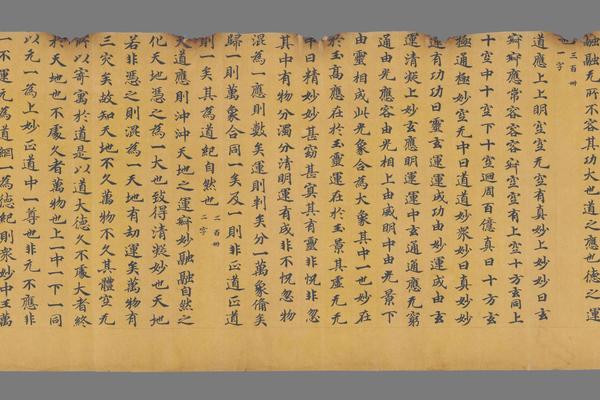 融融无所不容其功大也道之應也德之運
也
三百卅
一字
道應上上明空空无空有真妙上妙妙曰玄
辯辯應常容容容辯空空有上空十方玄同上
十空中十空下十空迴周百億真曰十方玄
極通極妙空无中曰道道妙眾妙曰真妙妙
有功功曰靈玄運運玄運成功由妙運成由玄
運清凝上妙運玄中玄通通應无窮
通由光應容由光相上由威明中由光景下
由靈相成此光象合為大象其中一也妙在
於玉高應在於玉靈運在於玉景其虛无无
中曰精妙妙甚窈甚冥其有靈非怳非忽
其中有物分濁分清明運有成非不怳忽物
混為一應則數矣運則判矣分一萬象備矣
歸一則萬象合同一矣及一則非正道正道
則一矣其為道紀自然也
二百卅
二字
大道應則沖沖天地之運辯妙融融自然之
化天地憑之為一大也致得清凝妙也天地
若非憑之則混為一天地有劫運矣萬物有
三灾矣故知天地不久萬物不久其體空无
所以寄寓於道是以道大德久不處大者終
於天地也不處久者萬物也上一中一下一同
以无一為上妙正道中一尊也非无不應非
一不運元為道綱一為德紀則眾妙中玉萬